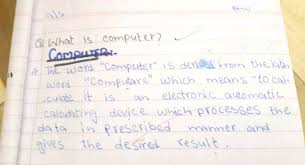 Q What is computer?
COMPUTER:-
A. The word "Computer" is derived from the latin
word "Compuare" which means "to cal-
culate it is an electronic automatic
calculating device which processes the
data in prescribed manner and
gives the desired result.